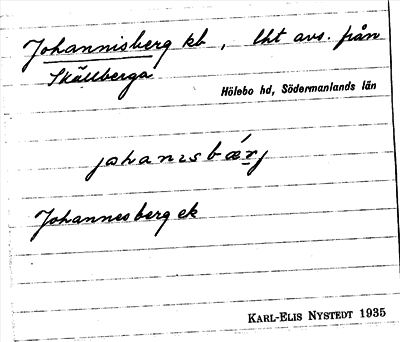 Johannisberg kb, lht avs. från
Skällberga
Hölebo hd, Södermanlands län
johanisbǽrj
Johannesberg ek
KARL-ELIS NYSTEDT 1935